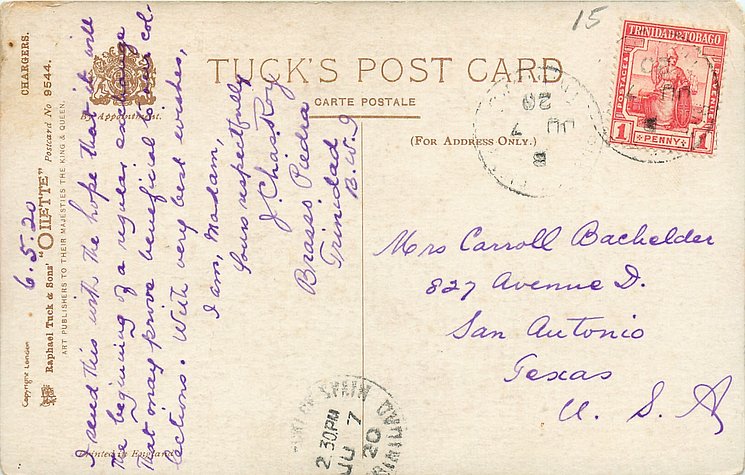 TUCK'S POST CARD
CARTE POSTALE
(FOR ADDRESS ONLY.)
By Appointment.
CHARGERS.
Raphael Tuck & Sons' "OILETTE" Postcard No 9544.
ART PUBLISHERS TO THEIR MAJESTIES THE KING & QUEEN.
Copyright London
Printed in England
15
TRINIDAD & TOBAGO
POSTAGE &
REVENUE
1 PENNY 1
20
7
JU
8
PORT OF SPAIN
TRINIDAD
2.30PM
JU 7
20
6.5.20
I send this with the hope that it will
the beginning of a regular exchange
that may prove beneficial to our col-
lections. With very best wishes,
I am, Madam,
Yours respectfully
J. Chas. Roy
Brasso Piedra
Trinidad
B.W.I
Mrs Carroll Bachelder
827 Avenue D.
San Antonio
Texas
U. S. A